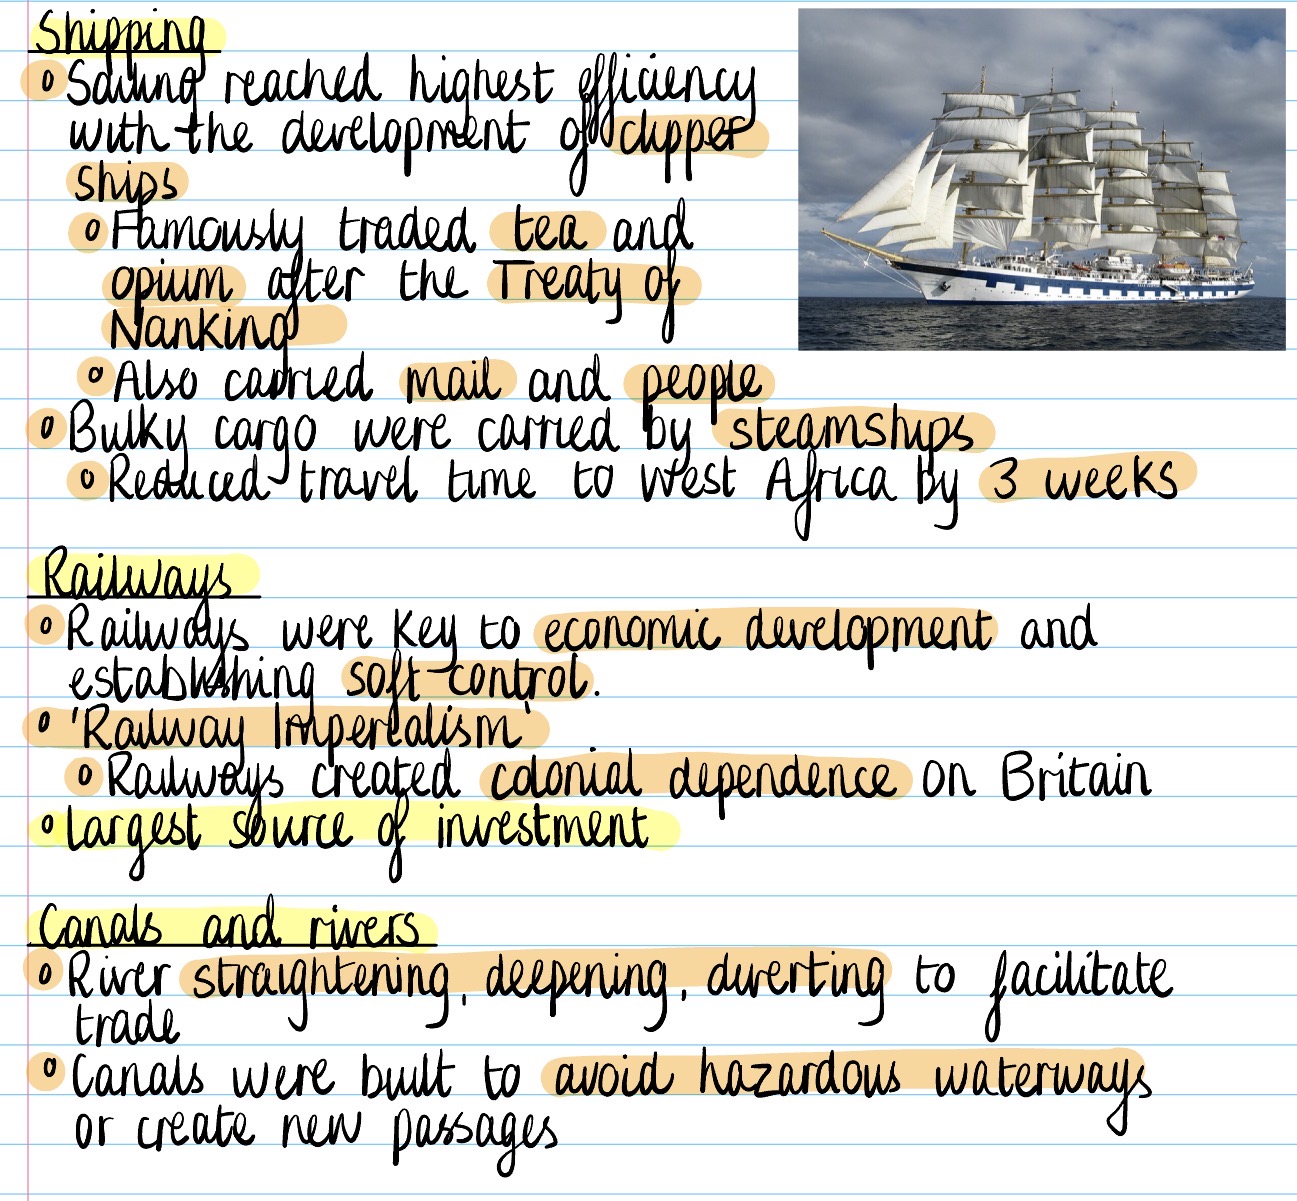 Shipping
Sailing reached highest efficiency
with the development of clipper
ships
Famously traded tea and
opium after the Treaty of
Nanking
Also carried mail and people
Bulky cargo were carried by steamships
Reduced travel time to West Africa by 3 weeks
Railways
Railways were key to economic development and
establishing soft control.
'Railway Imperialism'
Railways created colonial dependence on Britain
largest source of investment
Canals and rivers
River straightening, deepening, diverting to facilitate
trade
Canals were built to avoid hazardous waterways
or create new passages